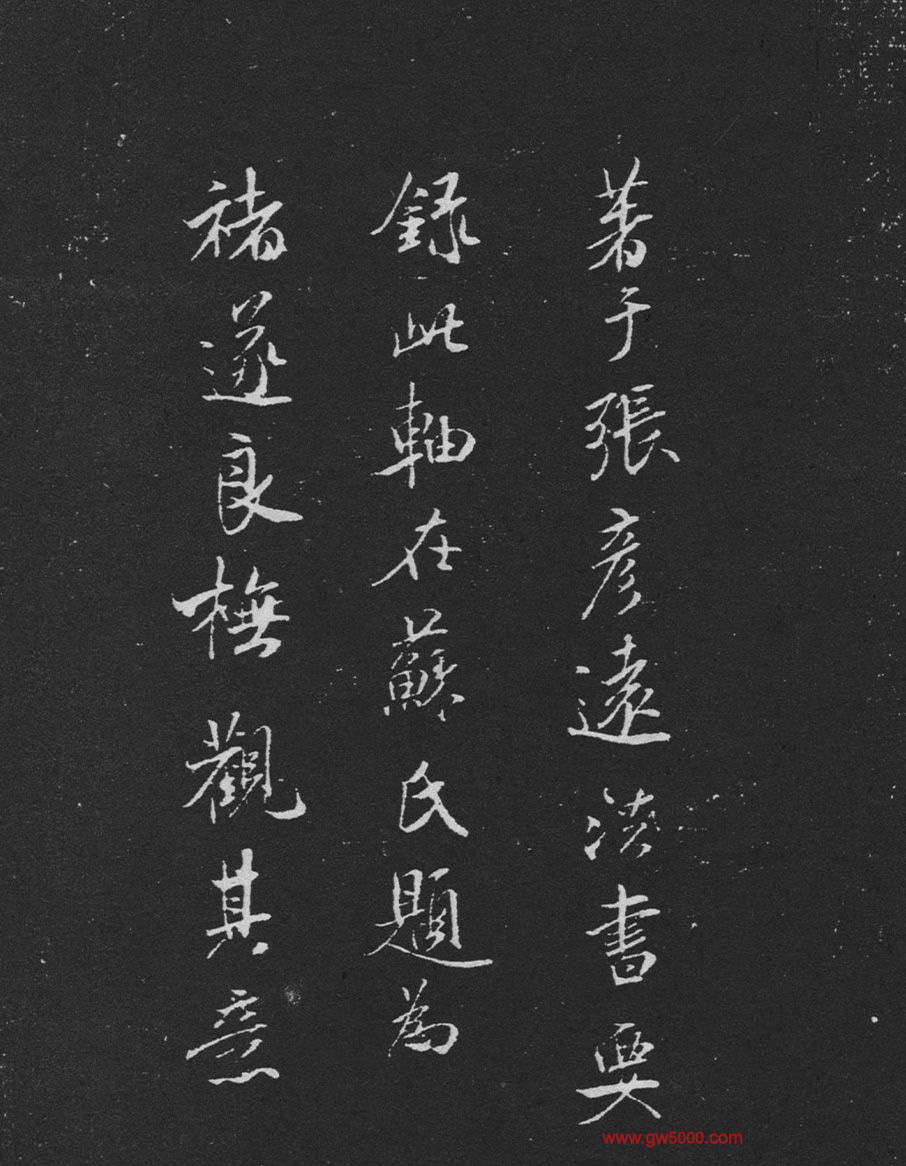 著于張彥遠法書要
録此軸在蘇氏題為
褚遂良橅觀其意
www.gw5000.com